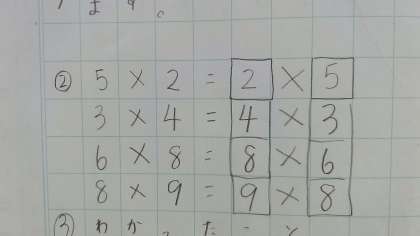 ます。
② 5 × 2 = 2 × 5
3 × 4 = 4 × 3
6 × 8 = 8 × 6
8 × 9 = 9 × 8
③